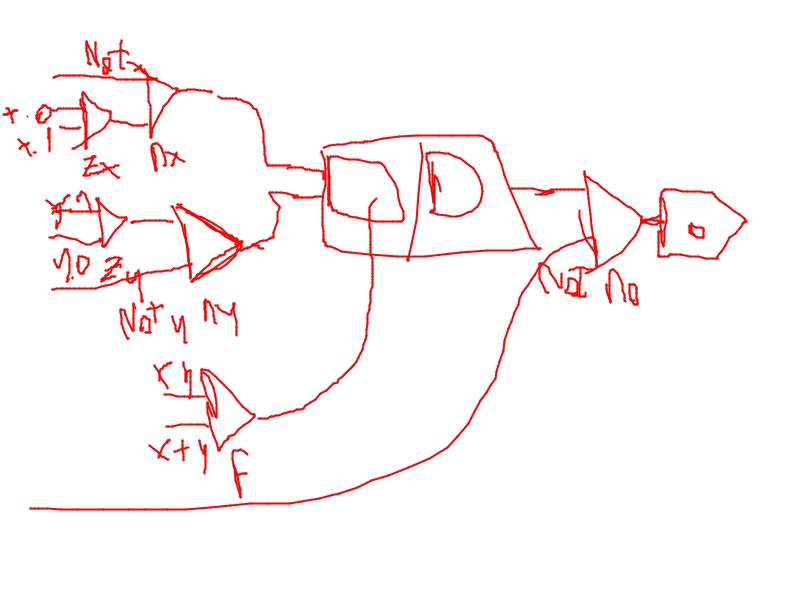 Not x
x.0
x.1
zx
nx
y.1
y.0
zy
Not y
ny
xy
x+y
f
Not
no
o